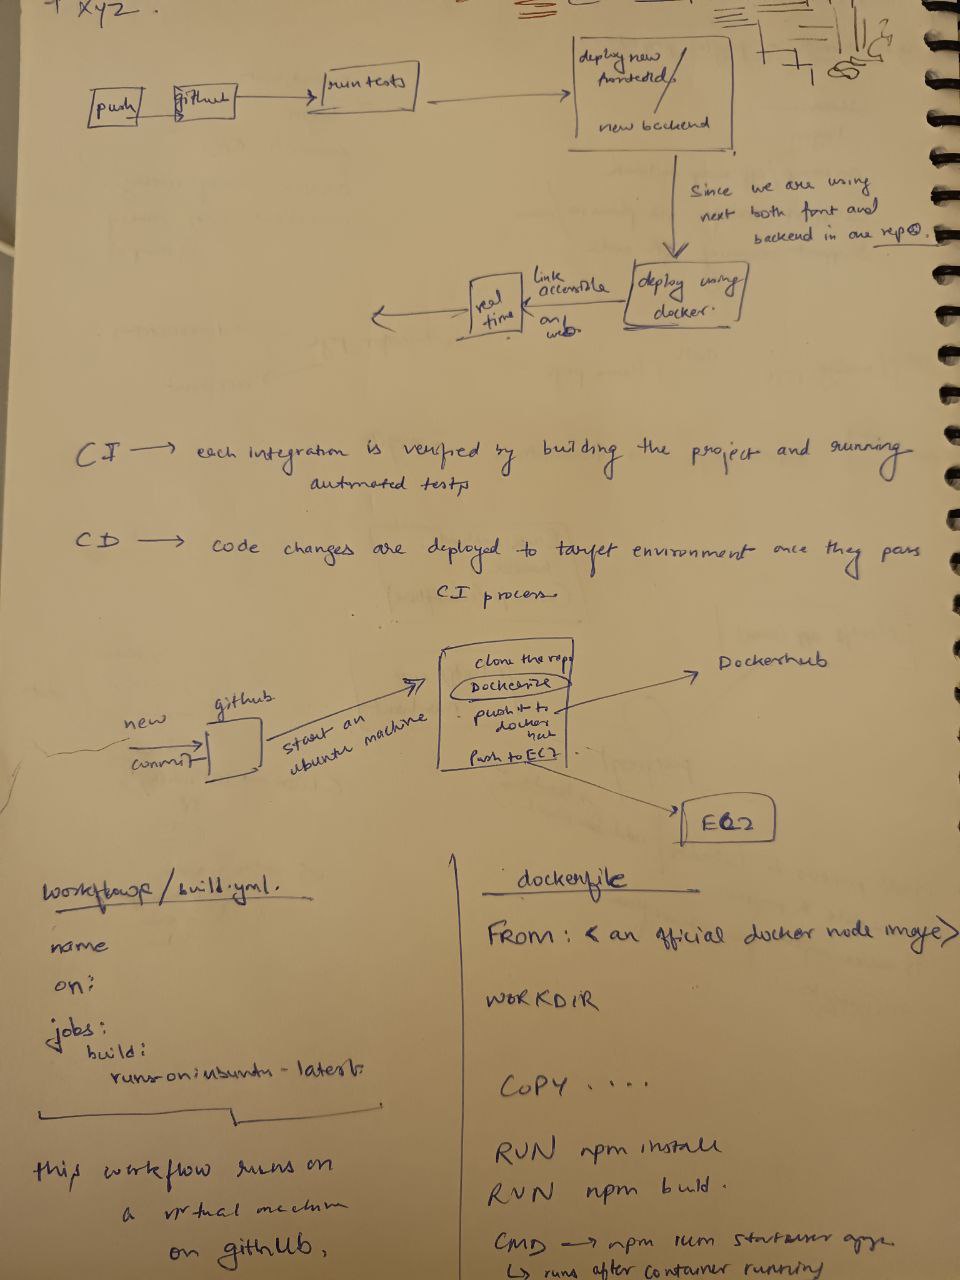 + xyz.
push
github
run tests
deploy new
new backend
Since we are using
next both font and
backend in one repo.
deploy using
docker.
link
accessible
on
web
real
time
CI → each integration is verified by building the project and running
automated tests
CD → code changes are deployed to target environment once they pass
CI process
new
commit
github
start an
ubuntu machine
clone the repo
Dockerize
push it to
docker
hub
Push to EC2
Dockerhub
EC2
workflows/build.yml.
name
on:
jobs:
build:
runs-on:ubuntu-latest
this workflow runs on
a virtual machine
on github.
dockerfile
FROM: < an official docker node image>
WORKDIR
COPY ....
RUN npm install
RUN npm build.
CMD → npm run
↳ runs after container running